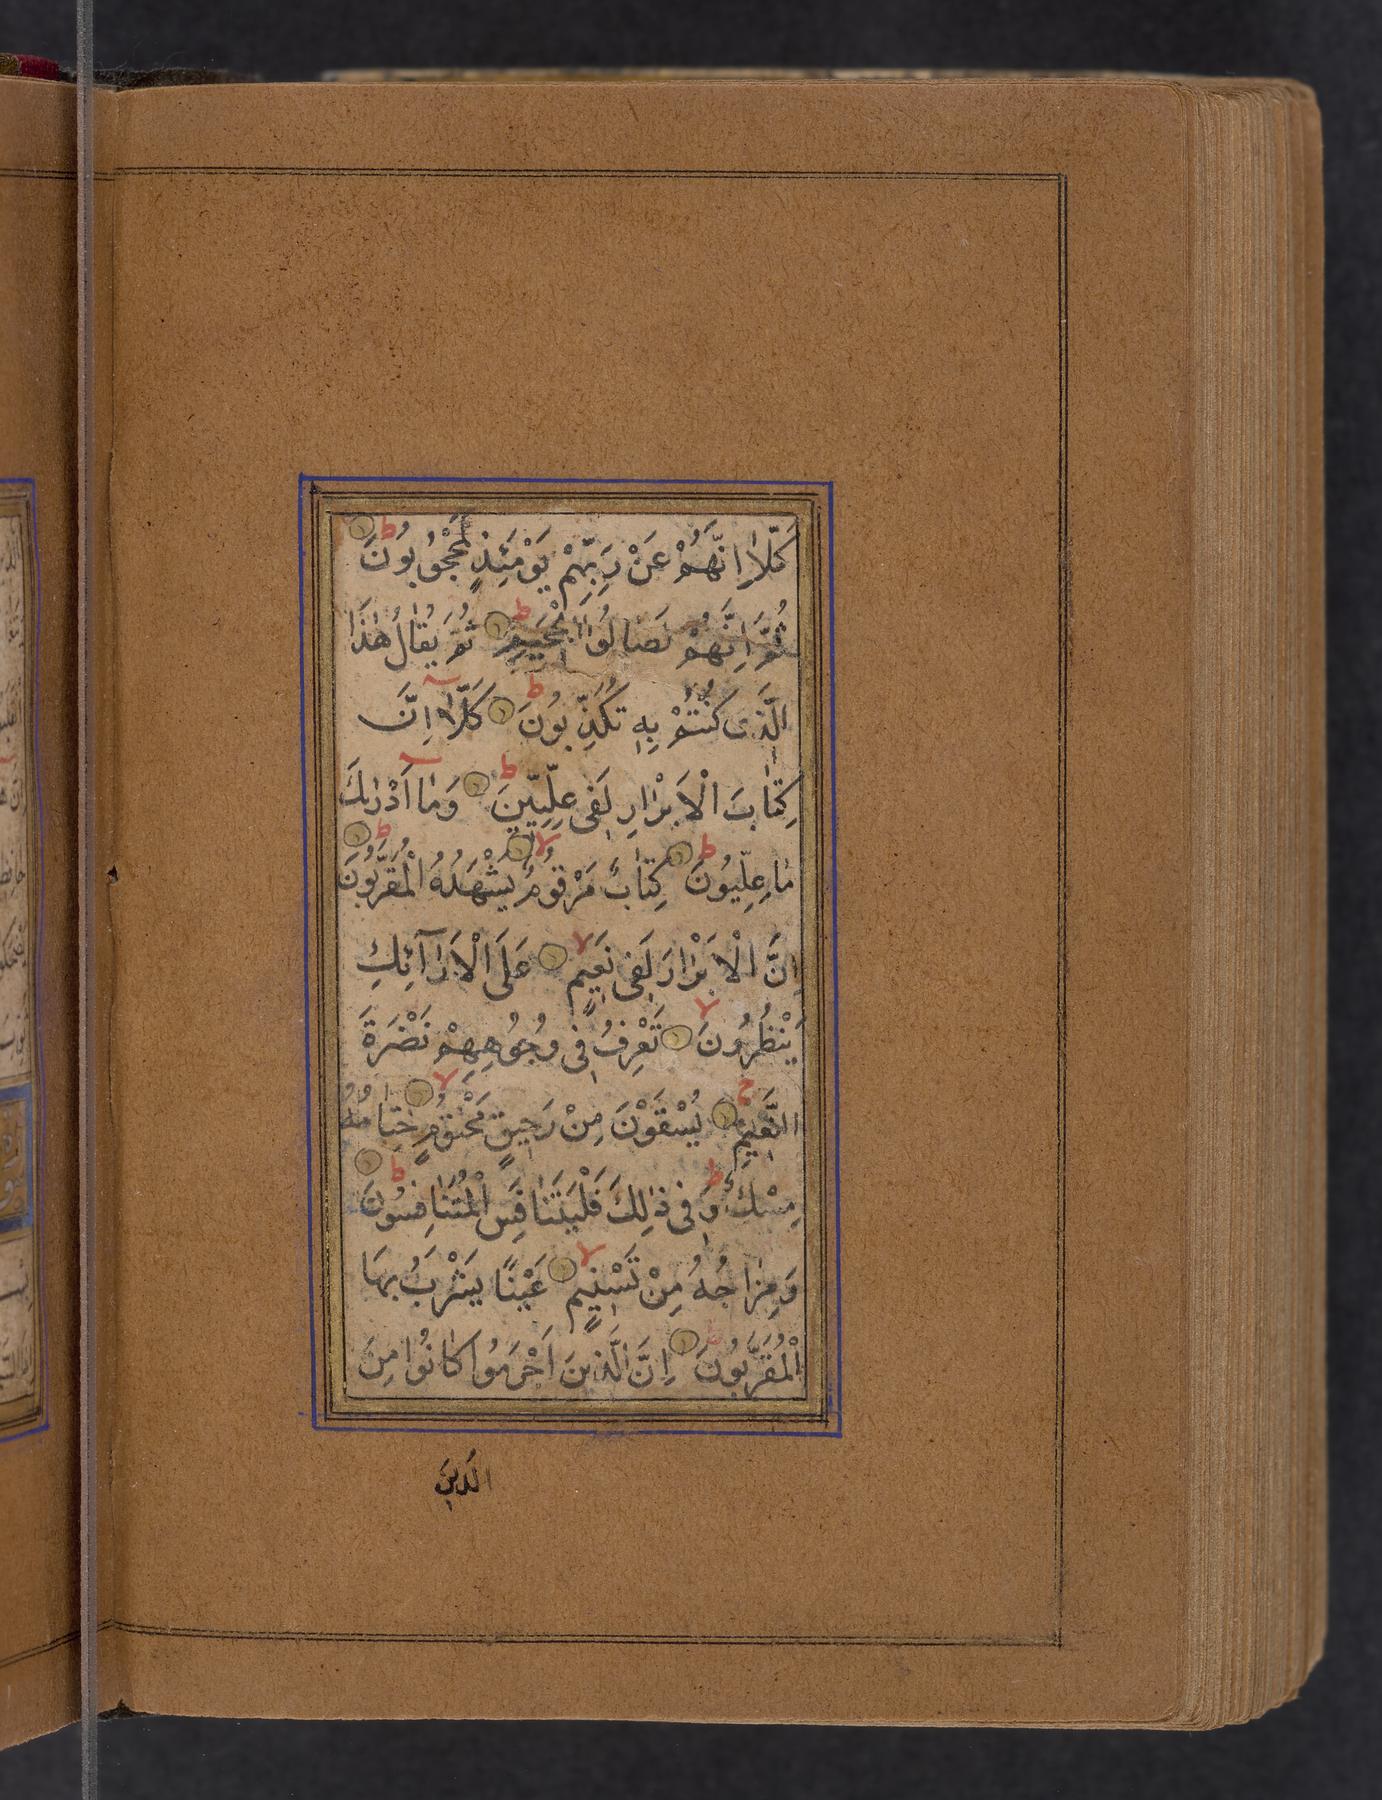 كَلَّا اِنَّهُمْ عَنْ رَبِّهِمْ يَوْمَئِذٍ لَمَحْجُوبُونَ ط
ثُمَّ اِنَّهُمْ لَصَالُوا الْجَحِيمِ ط ثُمَّ يُقَالُ هٰذَا
الَّذِى كُنْتُمْ بِهِ تُكَذِّبُونَ ط كَلَّا اِنَّ
كِتٰابَ الْاَبْرٰارِ لَفِى عِلِّيِّينَ ط وَمٰا اَدْرٰىكَ
مٰا عِلِّيُونَ ط كِتٰابٌ مَرْقُومٌ لا يَشْهَدُهُ الْمُقَرَّبُونَ ط
اِنَّ الْاَبْرٰارَ لَفِى نَعِيمٍ لا عَلَى الْاَرٰآئِكِ
يَنْظُرُونَ لا تَعْرِفُ فِى وُجُوهِهِمْ نَضْرَةَ
النَّعِيمِ ج يُسْقَوْنَ مِنْ رَحِيقٍ مَخْتُومٍ لا خِتَامُهُ
مِسْكٌ ط وَفِى ذٰلِكَ فَلْيَتَنٰافَسِ الْمُتَنٰافِسُونَ ط
وَمِزٰاجُهُ مِنْ تَسْنِيمٍ لا عَيْنًا يَشْرَبُ بِهَا
الْمُقَرَّبُونَ ط اِنَّ الَّذِينَ اَجْرَمُوا كَانُوا مِنَ
الَّذِينَ